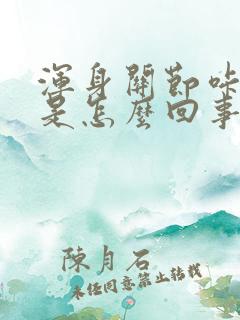 渾身關節咔
是怎麼回事
陳月石
未经同意禁止转载